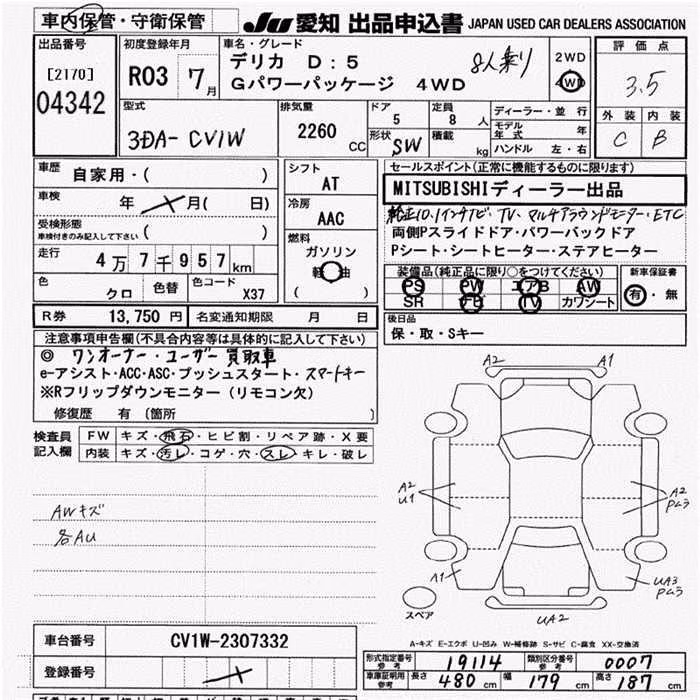 車内保管・守衛保管
JU 愛知 出品申込書 JAPAN USED CAR DEALERS ASSOCIATION
出品番号
[2170]
04342
初度登録年月
R03 7月
車名・グレード
デリカ D:5 8人乗り
Gパワーパッケージ 4WD
2WD
4WD
評価点
3.5
外装 内装
C B
型式
3DA-CV1W
排気量
2260 CC
ドア
5
定員
8 人
形状
SW
積載
kg
ディーラー・並行
モデル年式 年
ハンドル 左・右
車歴
自家用・( )
車検
年 月( 日)
受検形態
車検付きのみ記入して下さい ( )
走行
4万7千957km
色
クロ
色替
色コード
X37
シフト
AT
冷房
AAC
燃料
ガソリン
軽油
( )
セールスポイント(正常に機能するものに限ります)
MITSUBISHIディーラー出品
純正10.1インチナビ・TV、マルチアラウンドモニター・ETC
両側Pスライドドア・パワーバックドア
Pシート・シートヒーター・ステアヒーター
装備品(純正品に限り○をつけてください)
PS PW エアB AW
SR TV カワシート
新車保証書
有・無
R券 13,750円 名変通知期限 月 日
後日品
保・取・Sキー
注意事項申告欄(不具合内容等は具体的に記入して下さい)
◎ ワンオーナー・ユーザー買取車
e-アシスト・ACC・ASC・プッシュスタート・スマートキー
※Rフリップダウンモニター(リモコン欠)
修復歴 有 (箇所 )
検査員記入欄
FW キズ・飛石・ヒビ割・リペア跡・X要
内装 キズ・汚レ・コゲ・穴・スレ・キレ・破レ
AWキズ
各AU
A2 A1
A2
U1
A2
Pムラ
A1
UA3
Pムラ
スペア
UA2
A-キズ E-エクボ U-凹み W-補修跡 S-サビ C-腐食 XX-交換済
車台番号 CV1W-2307332
登録番号
形式指定番号 参考 19114 類別区分番号 参考 0007
車庫証明用 参考 長さ 480cm 幅 179cm 高さ 187cm